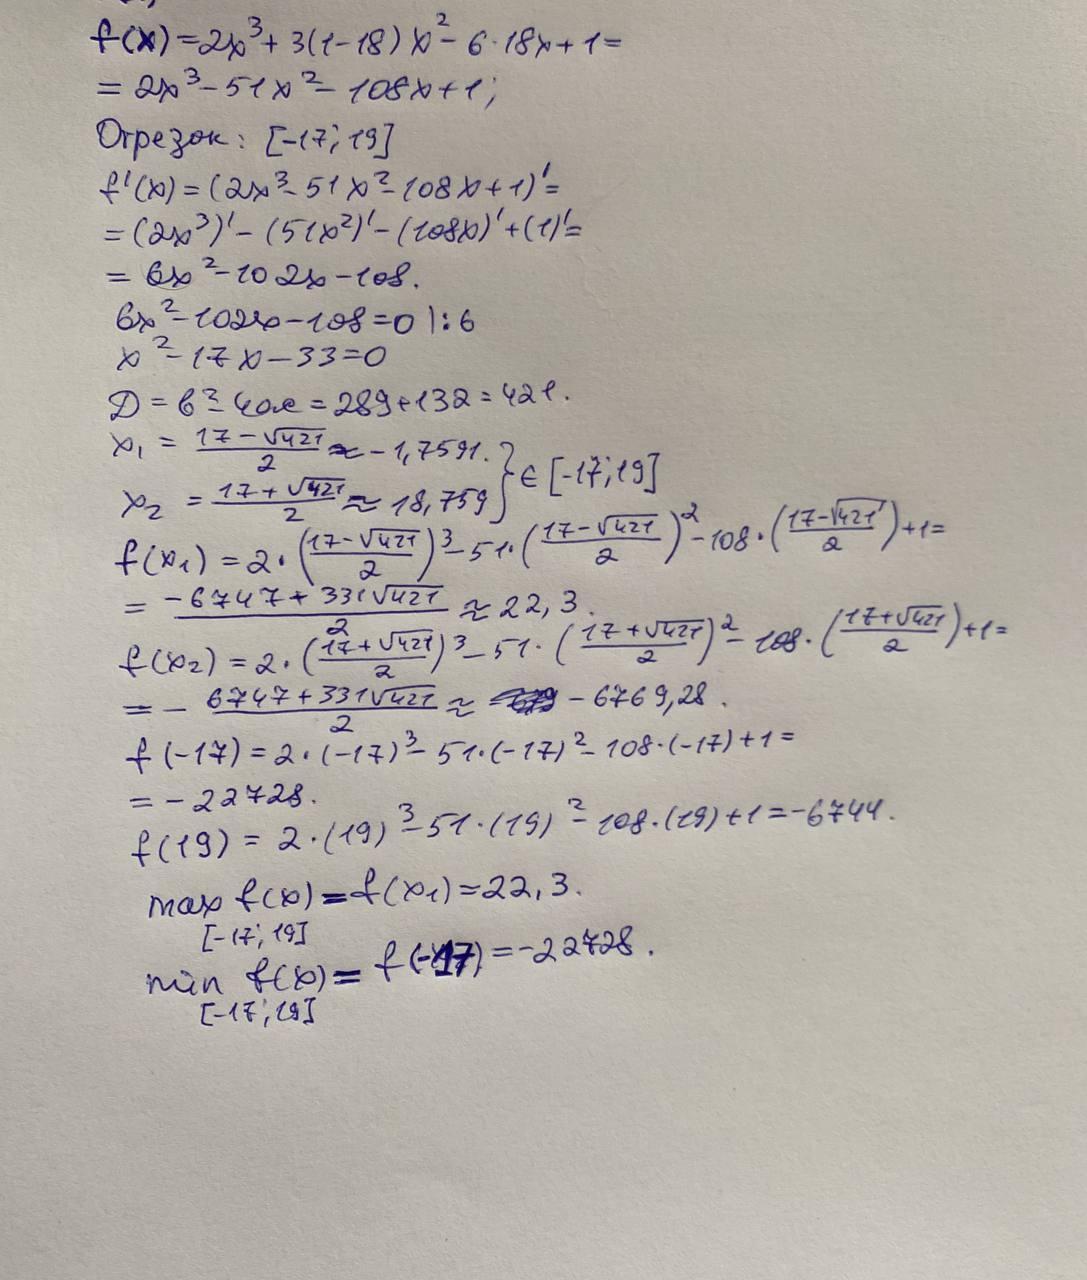 f(x) = 2x³ + 3(1-18)x² - 6·18x + 1 =
= 2x³ - 51x² - 108x + 1;
Отрезок: [-17; 19]
f'(x) = (2x³ - 51x² - 108x + 1)' =
= (2x³)' - (51x²)' - (108x)' + (1)' =
= 6x² - 102x - 108.
6x² - 102x - 108 = 0 |:6
x² - 17x - 33 = 0
Д = в² - 4ас = 289 + 132 = 421.
x₁ = (17 - √421)/2 ≈ -1,7591. } ∈ [-17; 19]
x₂ = (17 + √421)/2 ≈ 18,759
f(x₁) = 2·((17-√421)/2)³ - 51·((17-√421)/2)² - 108·((17-√421)/2) + 1 =
= (-6747 + 331√421)/2 ≈ 22,3.
f(x₂) = 2·((17+√421)/2)³ - 51·((17+√421)/2)² - 108·((17+√421)/2) + 1 =
= - (6747 + 331√421)/2 ≈ -6769,28.
f(-17) = 2·(-17)³ - 51·(-17)² - 108·(-17) + 1 =
= -22728.
f(19) = 2·(19)³ - 51·(19)² - 108·(19) + 1 = -6744.
max f(x) = f(x₁) = 22,3.
[-17; 19]
min f(x) = f(-17) = -22728.
[-17; 19]